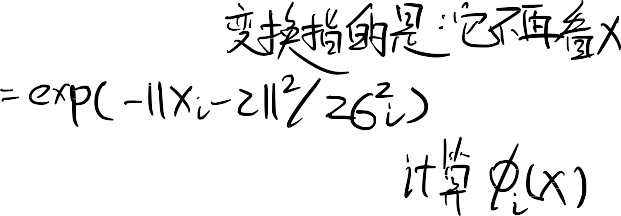 变换指的是:它不再看x
=exp(-||x_i-z||²/2σ_i²)
计算 φ_i(x)